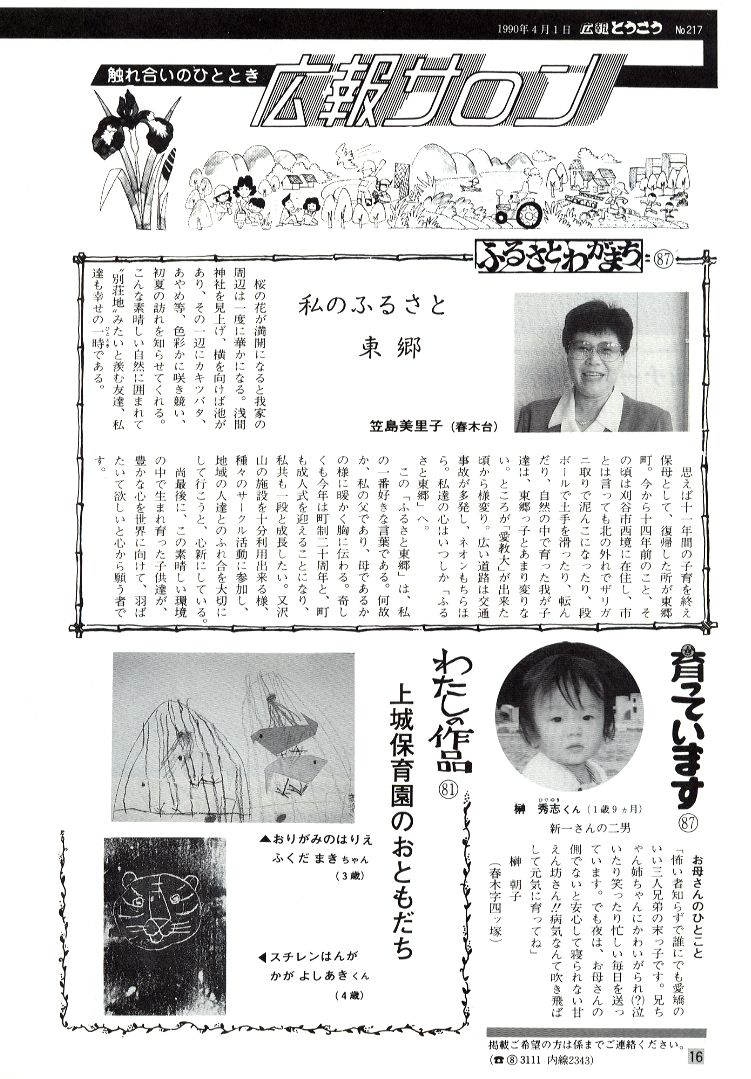 1990年4月1日 広報とうごう No217
触れ合いのひととき
広報サロン
ふるさとわがまち
87
私のふるさと
東郷
笠島美里子（春木台）
桜の花が満開になると我家の
周辺は一度に華かになる。浅間
神社を見上げ、横を向けば池が
あり、その一辺にカキツバタ、
あやめ等、色彩かに咲き競い、
初夏の訪れを知らせてくれる。
こんな素晴しい自然に囲まれて
〝別荘地〟みたいと羨む友達、私
達も幸せの一時である。
ひととき
思えば十一年間の子育を終え
保母として、復帰した所が東郷
町。今から十四年前のこと、そ
の頃は刈谷市西境に在住し、市
とは言っても北の外れでザリガ
ニ取りで泥んこになったり、段
ボールで土手を滑ったり、転ん
だり、自然の中で育った我が子
達は、東郷っ子とあまり変りな
い。ところが「愛教大」が出来た
頃から様変り。広い道路は交通
事故が多発し、ネオンもちらほ
ら。私達の心はいつしか「ふる
さと東郷」へ。
この「ふるさと東郷」は、私
の一番好きな言葉である。何故
か、私の父であり、母であるか
の様に暖かく胸に伝わる。奇し
くも今年は町制二十周年と、町
も成人式を迎えることになり、
私共も一段と成長したい。又沢
山の施設を十分利用出来る様、
種々のサークル活動に参加し、
地域の人達とのふれ合を大切に
して行こうと、心新にしている。
尚最後に、この素晴しい環境
の中で生まれ育った子供達が、
豊かな心を世界に向けて、羽ば
たいて欲しいと心から願う者で
す。
育っています
87
榊 秀志くん（1歳9ヵ月）
ひでゆき
新一さんの二男
お母さんのひとこと
「怖い者知らずで誰にでも愛嬌の
いい三人兄弟の末っ子です。兄ち
ゃん姉ちゃんにかわいがられ(?)泣
いたり笑ったり忙しい毎日を送っ
ています。でも夜は、お母さんの
側でないと安心して寝られない甘
えん坊さん!!病気なんて吹き飛ば
して元気に育ってね」
榊 朝子
（春木字四ッ塚）
わたしの作品
81
上城保育園のおともだち
▲おりがみのはりえ
ふくだ まきちゃん
（3歳）
◀スチレンはんが
かが よしあきくん
（4歳）
掲載ご希望の方は係までご連絡ください。
（☎⑧3111 内線2343）
16